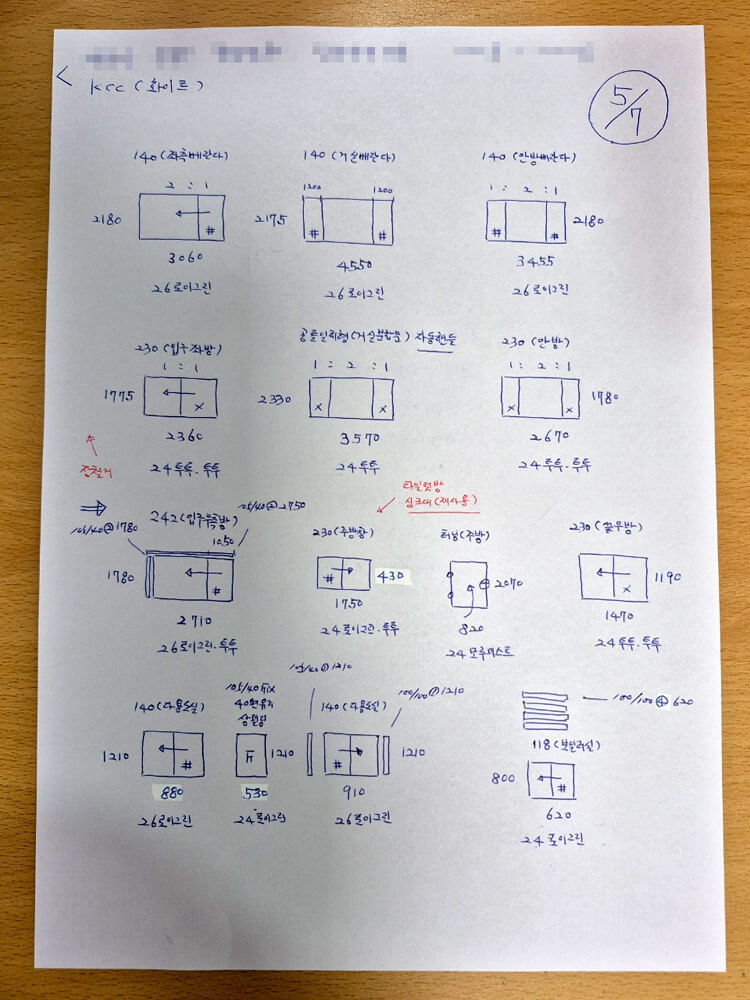 kcc (화이트)
5/7
140 (좌측베란다)
2 : 1
2180
#
3060
26로이그린
140 (거실베란다)
1200 1200
2175
# #
4550
26로이그린
140 (안방베란다)
1 : 2 : 1
# #
2180
3455
26로이그린
230 (입구좌방)
1 : 1
1775
x
2360
24투투.투투
공틀일체형 (거실분합문) 자동핸들
1 : 2 : 1
2330
x x
3570
24투투
230 (안방)
1 : 2 : 1
x x
1780
2670
24투투.투투
242 (입구우측방)
105/40 ② 1780
105/40 ② 2750
1050
1780
#
2710
26로이그린.투투
타일덧방
싱크대 (재사용)
230 (주방창)
#
430
1750
24로이그린.투투
터닝 (주방)
2070
820
24모루미스트
230 (끝우방)
x
1190
1470
24투투.투투
140 (다용도실)
1210
#
880
26로이그린
105/40 FIX
1210
530
24로이그린
105/40 ① 1210
140 (다용도실)
100/100 ① 1210
#
1210
910
26로이그린
100/100 ④ 620
118 (보일러실)
800
#
620
24로이그린